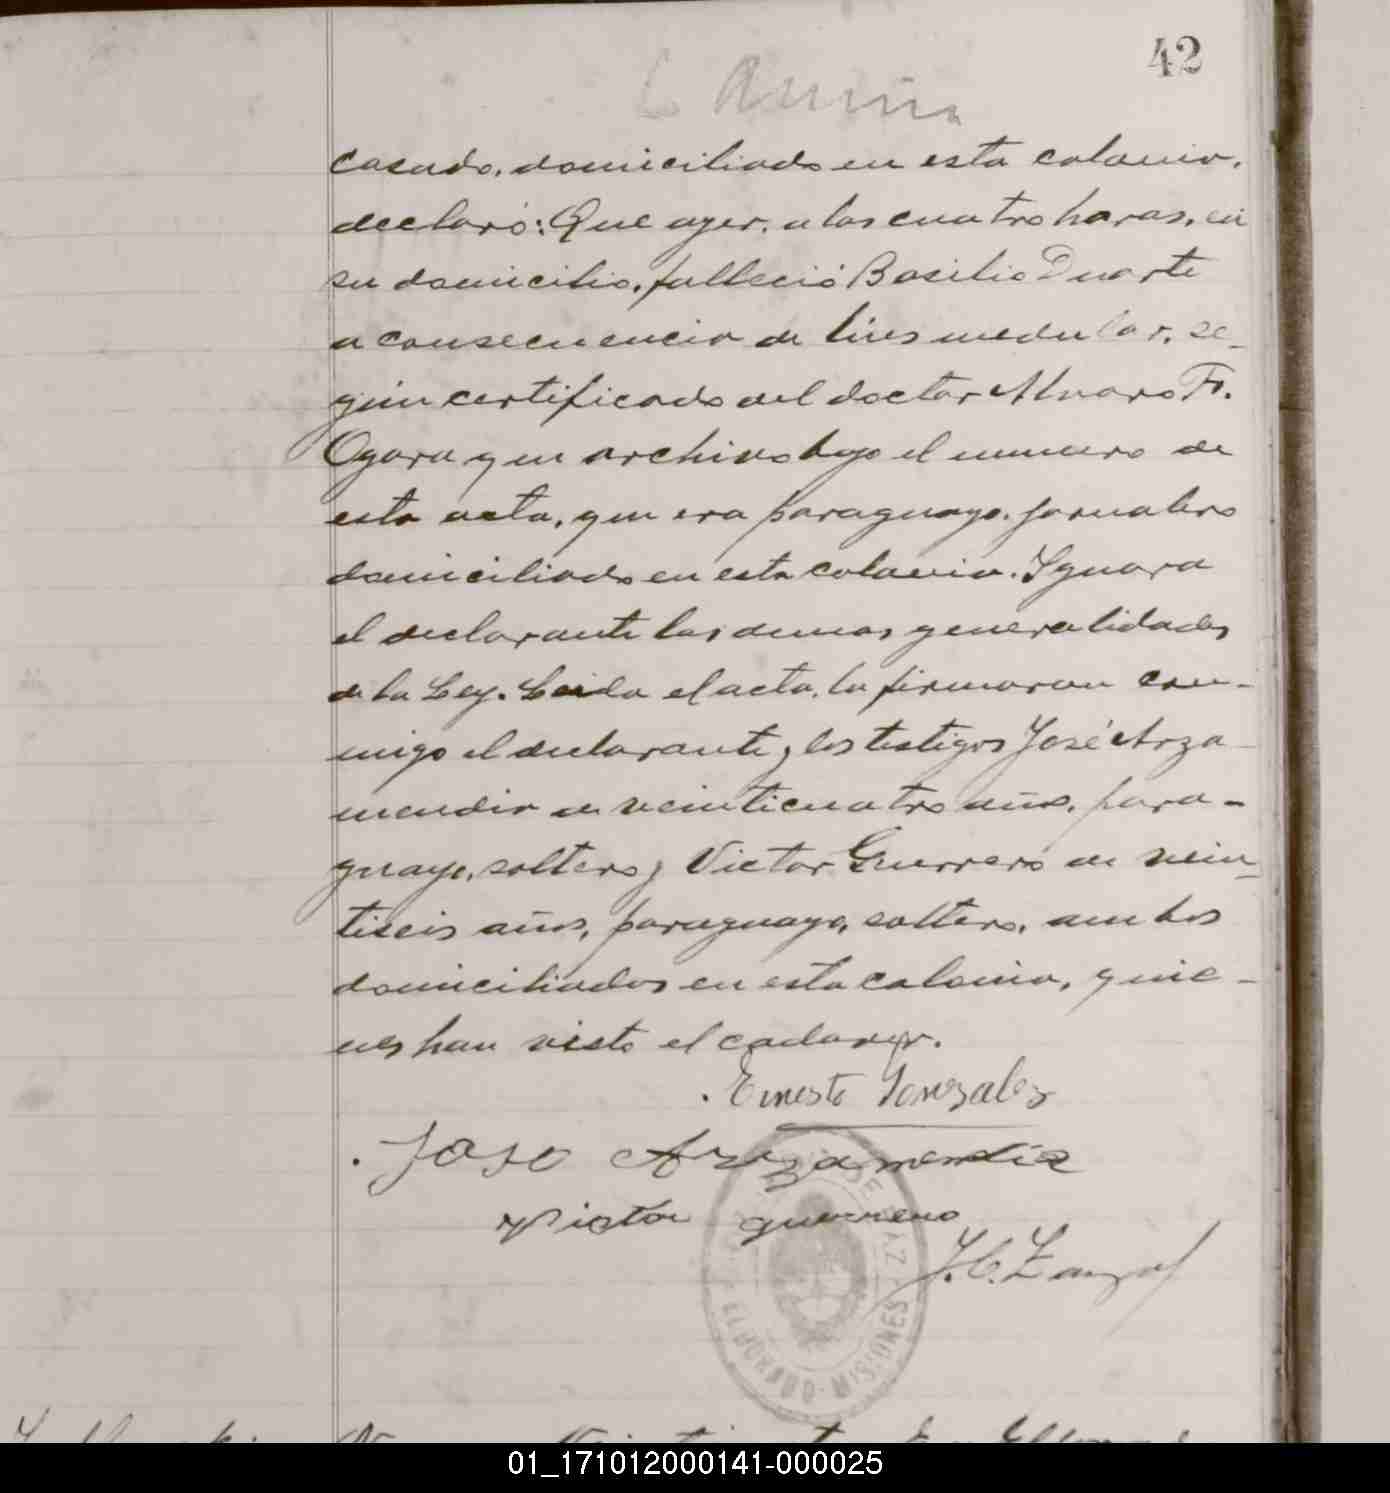 42
casado, domiciliado en esta colonia,
declaró: Que ayer, a las cuatro horas, en
su domicilio, falleció Basilio Duarte
a consecuencia de lúes medular, se-
gún certificado del doctor Alvaro F.
Ogara que archivo bajo el numero de
esta acta, que era paraguayo, jornalero
domiciliado en esta colonia. Ignora
el declarante las demas generalidades
de la Ley. Leida el acta, la firmaron con-
migo el declarante y los testigos José Arza-
mendia de veinticuatro años, para-
guayo, soltero y Victor Guerrero de vein-
tiseis años, paraguayo, soltero, ambos
domiciliados en esta colonia, quie-
nes han visto el cadaver.
Ernesto Gonzalez
Jose Arzamendia
Victor guerrero
DE PAZ
ELDORADO - MISIONES
01_171012000141-000025